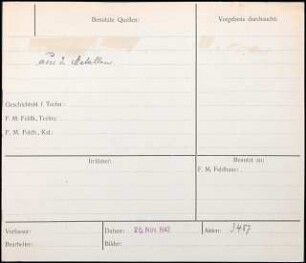 Benutzte Quellen:
Vergebens durchsucht:
aus 2 Metallen
Geschichtsbl. f. Techn.:
F. M. Feldh., Techn.:
F. M. Feldh., Kal.:
Irrtümer:
Benutzt zu:
F. M. Feldhaus:
Verfasser:
Datum:
Nov.
Akten: 3457
Bearbeiter:
Bilder: